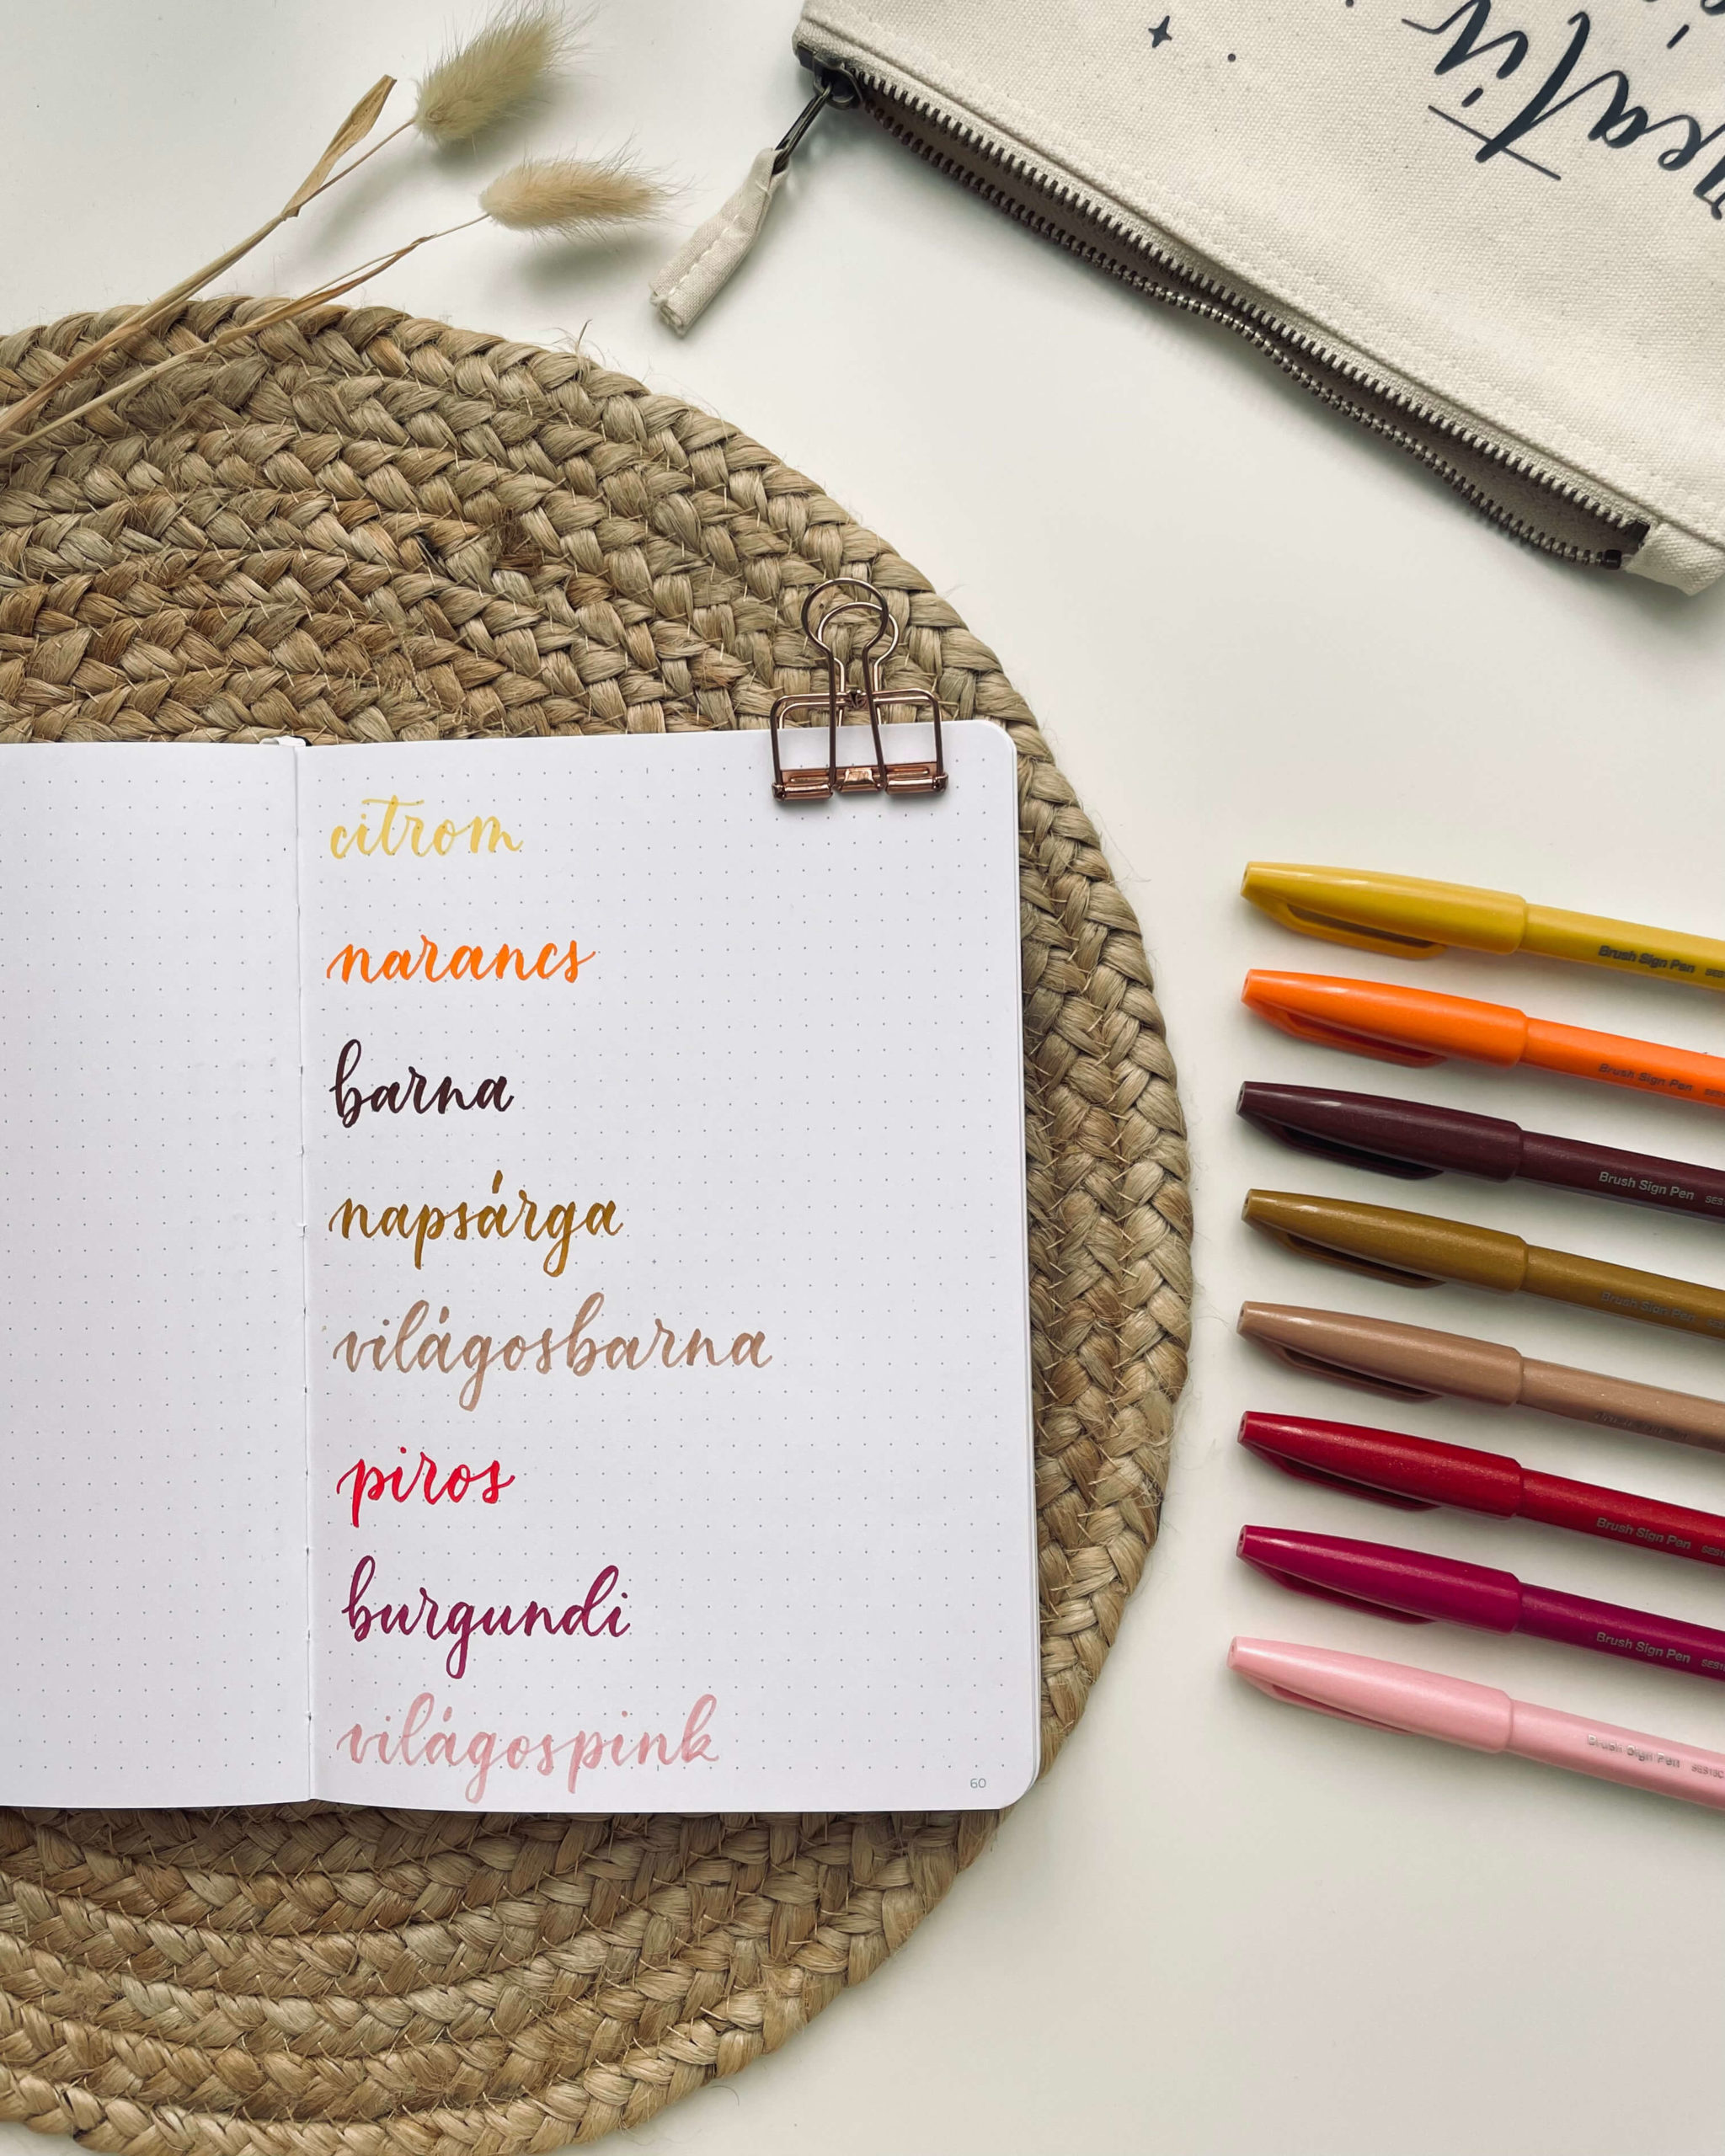 citrom
narancs
barna
napsárga
világosbarna
piros
burgundi
világospink
60
Brush Sign Pen
Brush Sign Pen
Brush Sign Pen
Brush Sign Pen
Brush Sign Pen
Brush Sign Pen
Brush Sign Pen
Brush Sign Pen